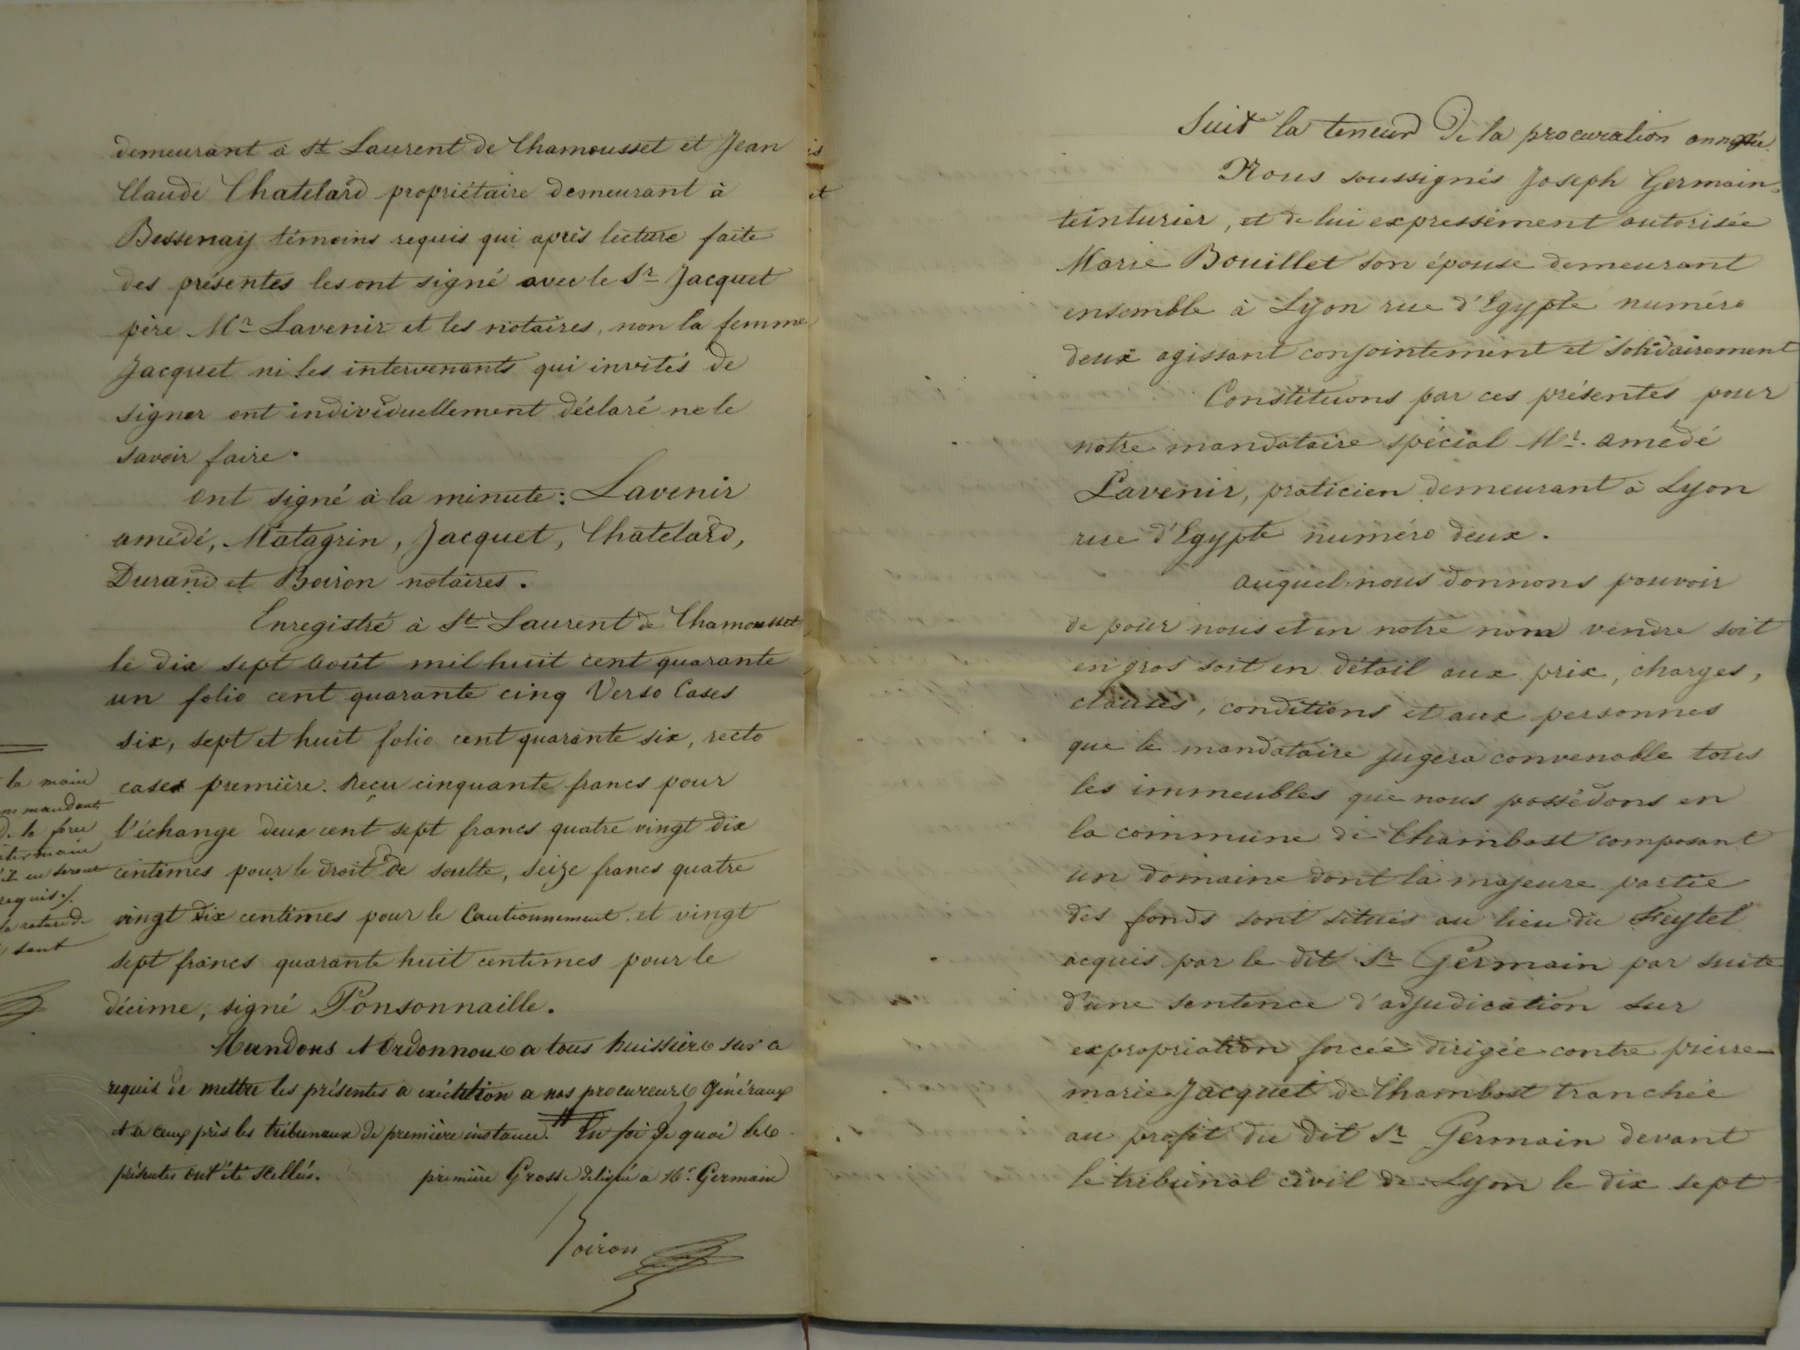 demeurant à St Laurent de Chamousset et Jean
Claude Chatelard propriétaire demeurant à
Bessenay témoins requis qui après lecture faite
des présentes les ont signé avec le Sr Jacquet
père Mr Lavenir et les notaires, non la femme
Jacquet ni les intervenants qui invités de
signer ont individuellement déclaré ne le
savoir faire.
ont signé à la minute: Lavenir
amédé, Matagrin, Jacquet, Chatelard,
Durand et Boiron notaires.
Enregistré à St Laurent de Chamousset
le dix sept août mil huit cent quarante
un folio cent quarante cinq Verso Cases
six, sept et huit folio cent quarante six, recto
cases première. Reçu cinquante francs pour
l'échange deux cent sept francs quatre vingt dix
centimes pour le droit de soulte, seize francs quatre
vingt dix centimes pour le Cautionnement et vingt
sept francs quarante huit centimes pour le
décime, signé Ponsonnaille.
Mandons et Ordonnons a tous huissiers sur ce
requis de mettre les présentes a exécution a nos procureurs Généraux
et a ceux près les tribunaux de première instance. # En foi de quoi les
présentes ont été scellés.
première Grosse délivré a Mr Germain
la main
mandant
de la force
requis
sont
Suit la teneur de la procuration annexée
Nous soussignés Joseph Germain
teinturier, et de lui expressément autorisée
Marie Bouillet son épouse demeurant
ensemble à Lyon rue d'Egypte numéro
deux agissant conjointement et solidairement
Constituons par ces présentes pour
notre mandataire spécial Mr. amédé
Lavenir, praticien demeurant à Lyon
rue d'Egypte numéro deux.
auquel nous donnons pouvoir
de pour nous et en notre nom vendre soit
en gros soit en détail aux prix, charges,
clauses, conditions et aux personnes
que le mandataire jugera convenable tous
les immeubles que nous possédons en
la commune de Chambost composant
un domaine dont la majeure partie
des fonds sont situés au lieu du Feytel
acquis par le dit Sr Germain par suite
d'une sentence d'adjudication sur
expropriation forcée dirigée contre pierre
marie Jacquet de Chambost tranchée
au profit du dit Sr Germain devant
le tribunal civil de Lyon le dix sept